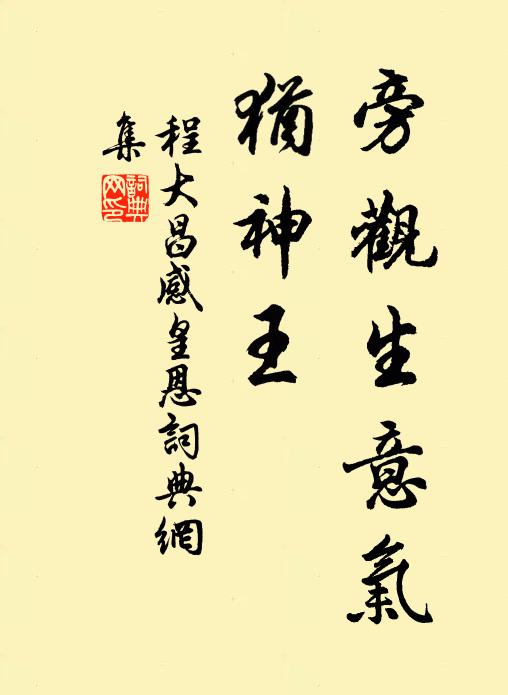 旁觀生意氣
猶神王
程大昌感皇恩詞典網
集
詞典網印